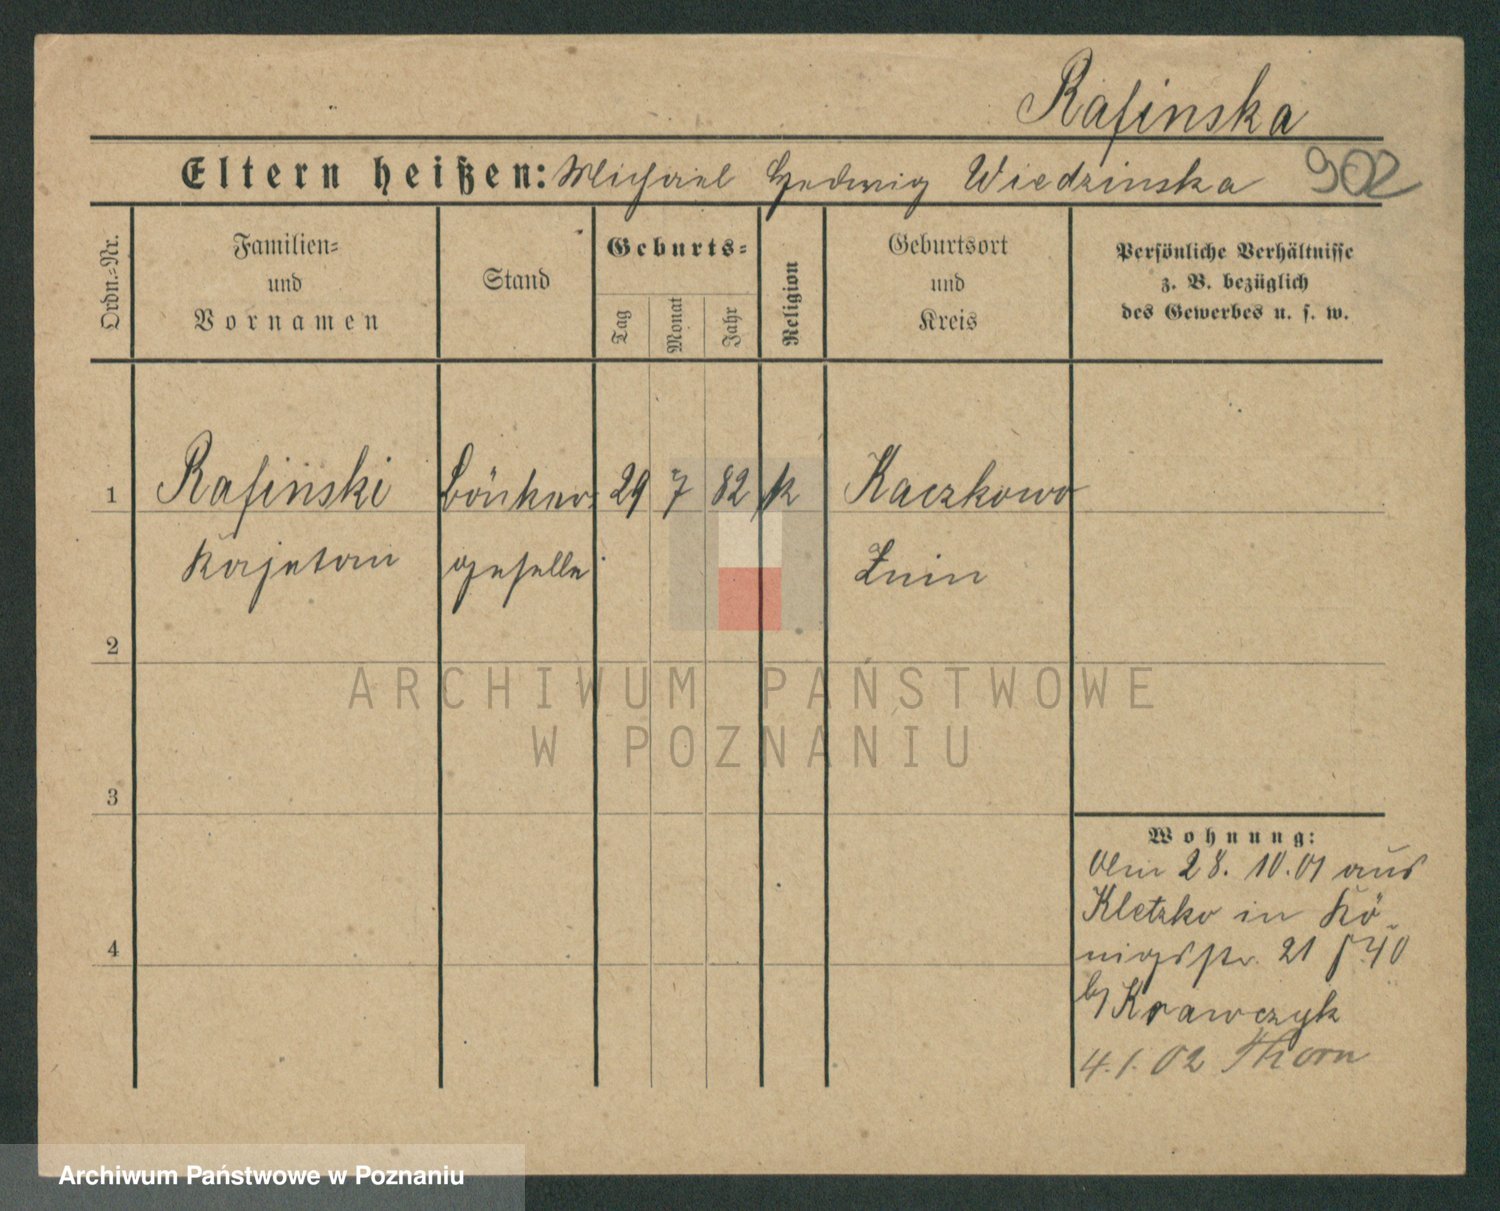 Rafinska
Eltern heißen: Michael Hedwig Wiedzinska 902
Ordn.=Nr.
Familien=
und
Vornamen
Stand
Geburts=
Tag
Monat
Jahr
Religion
Geburtsort
und
Kreis
Persönliche Verhältnisse
z. B. bezüglich
des Gewerbes u. s. w.
1 Rafinski Böttcher 29 7 82 k Kaczkowo
Kajetan geselle Znin
2
3
4
Wohnung:
Vom 28. 10. 01 aus
Kletzko in Kö-
nigsstr. 21
by Krawczyk
4. 1. 02 Thorn
ARCHIWUM PAŃSTWOWE
W POZNANIU
Archiwum Państwowe w Poznaniu